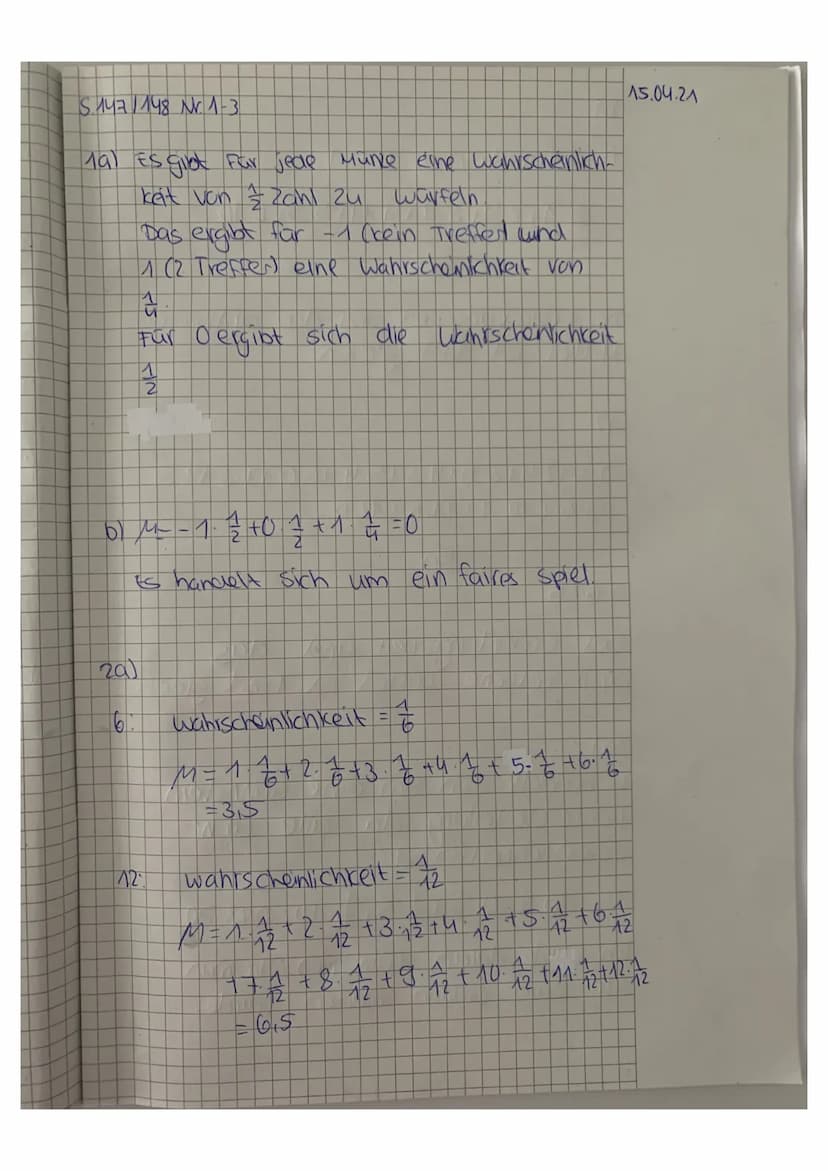 S.147/148 Nr. 1-3
15.04.21
1a) Es gibt für jede Münze eine Wahrscheinlich-
keit von 1/2 Zahl zu würfeln.
Das ergibt für -1 (kein Treffer) und
1 (2 Treffer) eine Wahrscheinlichkeit von
1/4.
Für 0 ergibt sich die Wahrscheinlichkeit
1/2
b) μ= -1 · 1/2 + 0 · 1/2 + 1 · 1/4 = 0
Es handelt sich um ein faires Spiel.
2a)
6: Wahrscheinlichkeit = 1/6
μ = 1 · 1/6 + 2 · 1/6 + 3 · 1/6 + 4 · 1/6 + 5 · 1/6 + 6 · 1/6
= 3,5
12: Wahrscheinlichkeit = 1/12
μ = 1 · 1/12 + 2 · 1/12 + 3 · 1/12 + 4 · 1/12 + 5 · 1/12 + 6 · 1/12
+ 7 · 1/12 + 8 · 1/12 + 9 · 1/12 + 10 · 1/12 + 11 · 1/12 + 12 · 1/12
= 6,5